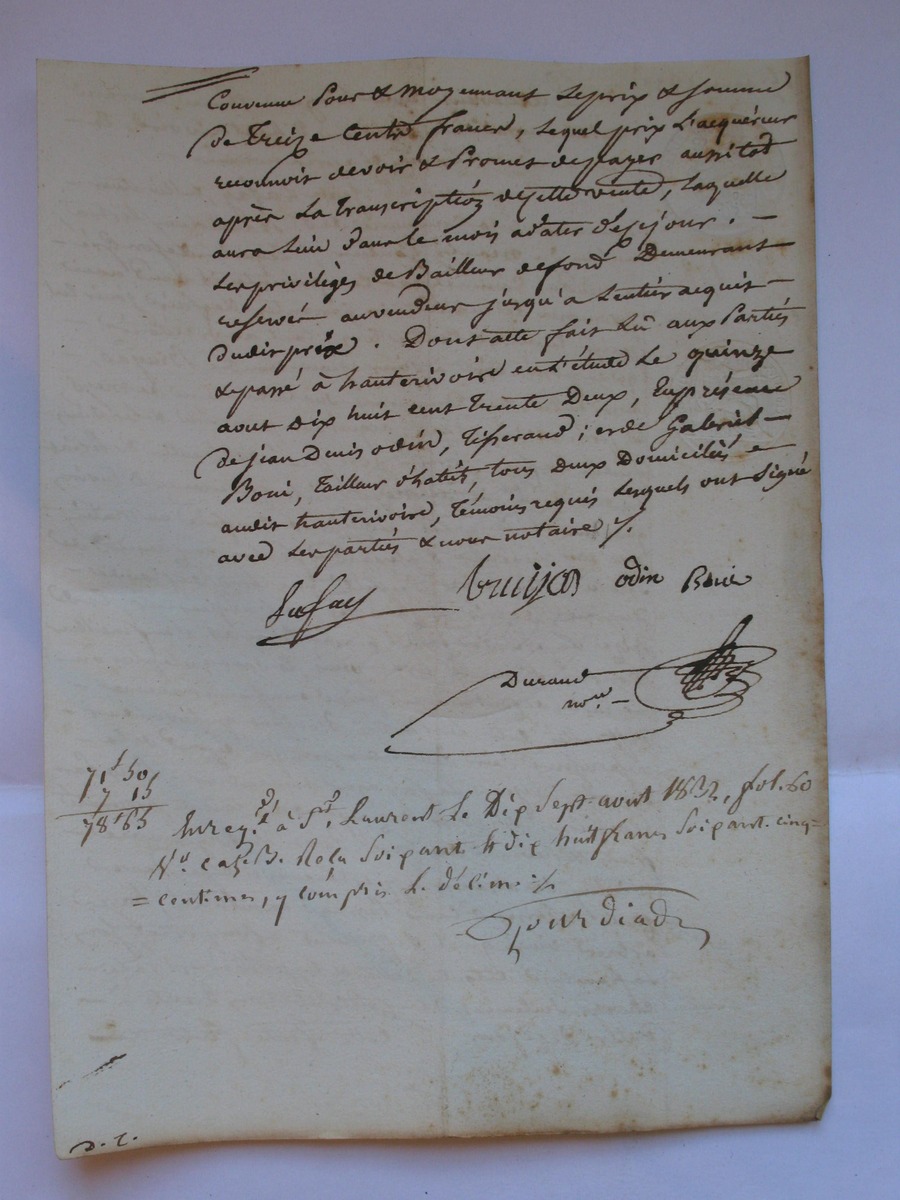 Convenue Pour & moyennant le prix & somme
de treize Cents francs, lequel prix L'acquéreur
reconnoit devoir & Promet de payer aussitot
après La transcription de cette vente, laquelle
aura lieu dans le mois a dater de ce jour. —
Les privilèges de Bailleur de fond Demeurant
reservés au vendeur jusqu'a l'entier acquit —
dudit prix. Dont acte fait Lû aux Parties
& passé à hauterivoire en l'étude Le quinze
aout Dix huit cent trente Deux, En présence
de jean Denis odin, Tisserand; et de Gabriel —
Boni, tailleur d'habits, tous deux Domiciliés
audit hauterivoire, témoins requis Lesquels ont Signé
avec Les parties & nous notaire
odin
Durand
no.re —
71f 50
7 15
78f 65
Enreg.é à St. Laurent Le Dix Sept aout 1832, fol. 60
Soixante dix huit francs Soixante cinq =
= centimes, y compris Le décime